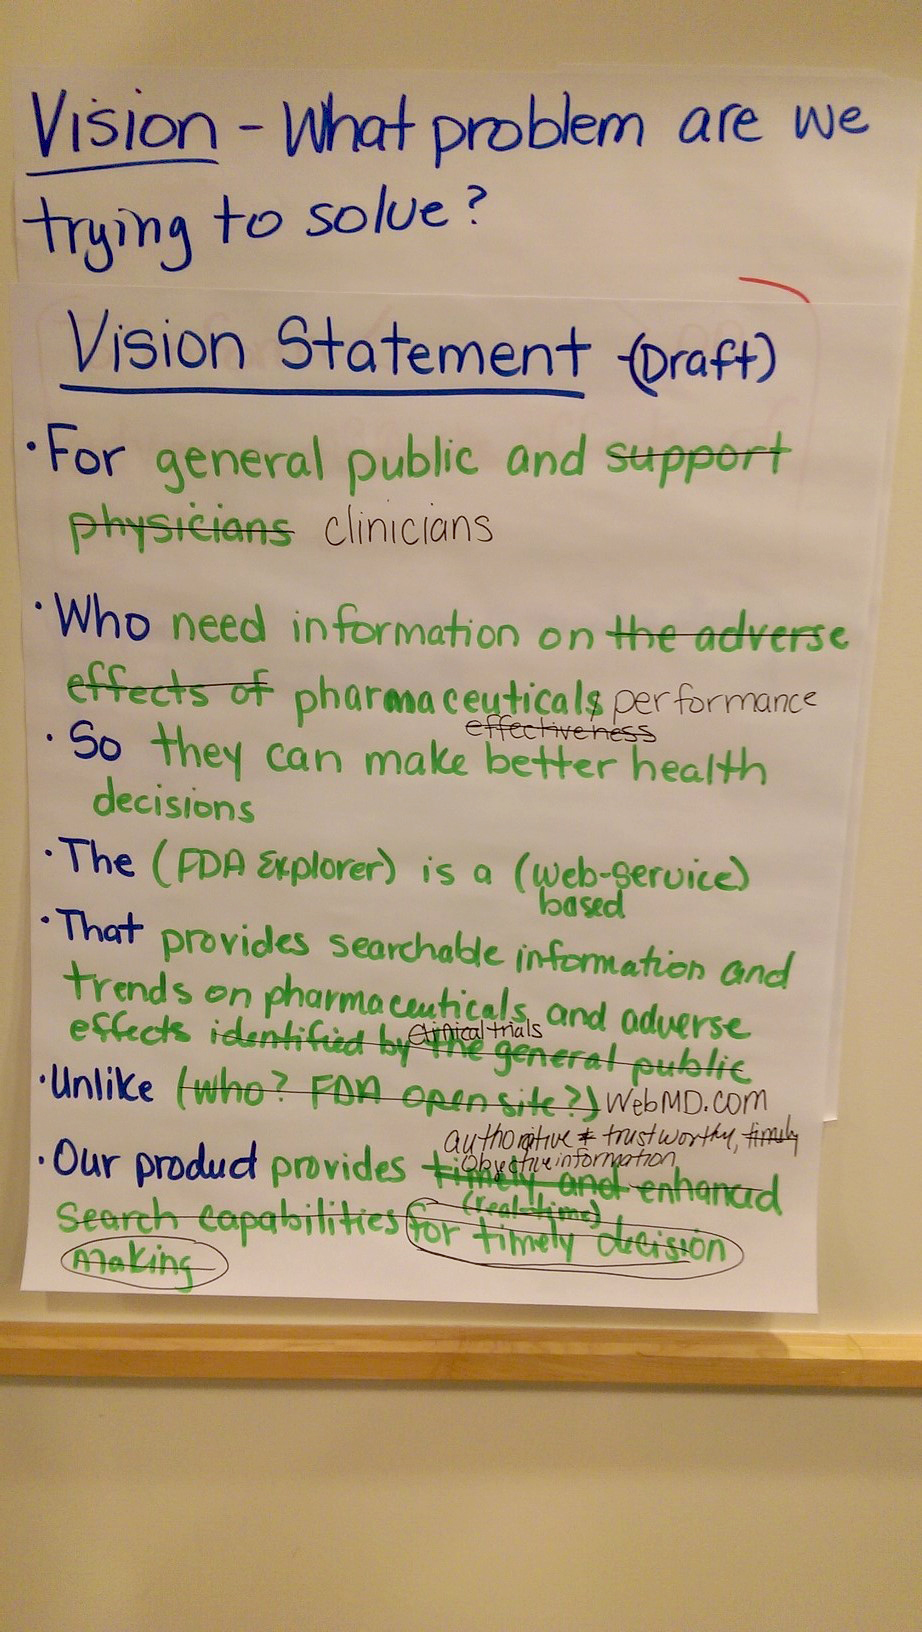 Vision - What problem are we
trying to solve?
Vision Statement (Draft)
• For general public and support
physicians clinicians
• Who need information on the adverse
effects of pharmaceuticals performance
effectiveness
• So they can make better health
decisions
• The (FDA Explorer) is a (web-service)
based
• That provides searchable information and
trends on pharmaceuticals, and adverse
clinical trials
effects identified by the general public
• Unlike (who? FDA open site?) WebMD.com
authoritive & trustworthy, timely
objective information
• Our product provides timely and enhanced
(real-time)
search capabilities for timely decision
making